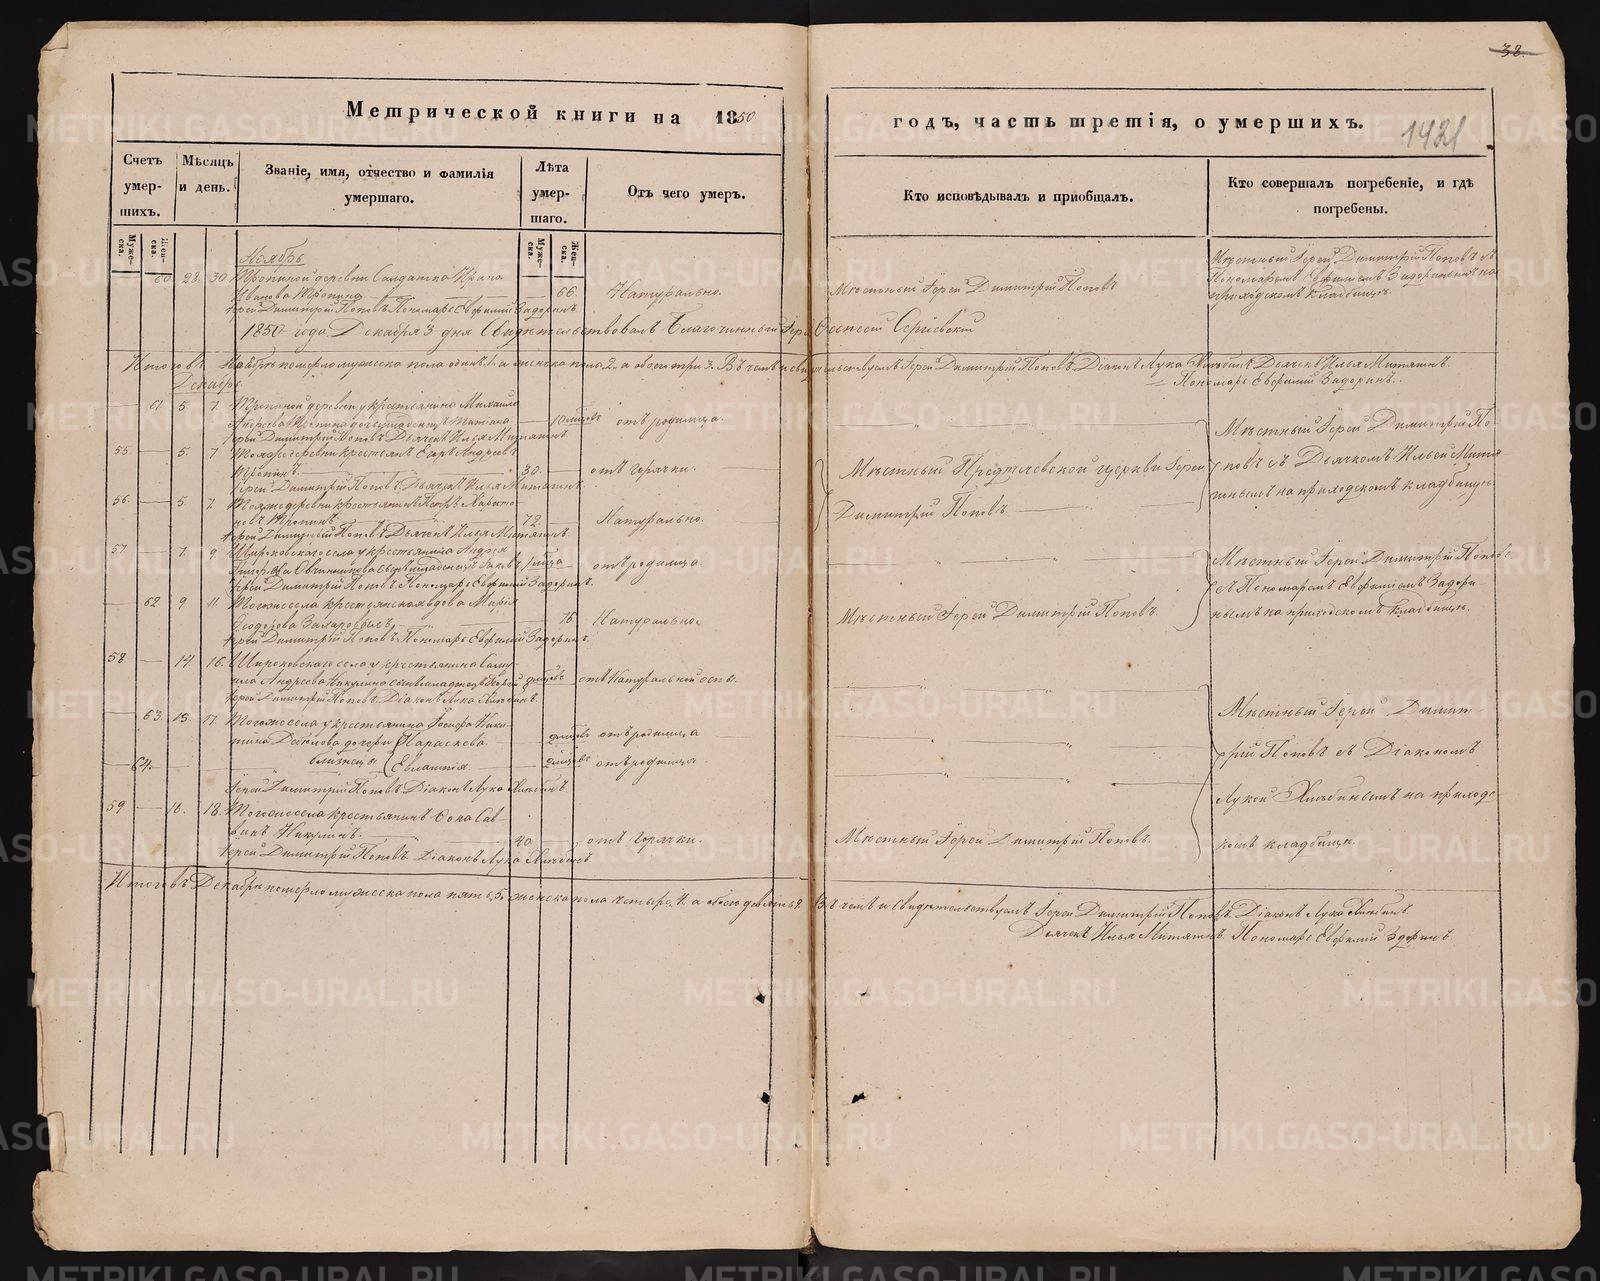 38.
Метрической книги на 1850
годъ, часть третія, о умершихъ.
1421
Счетъ умершихъ.
Мѣсяцъ и день.
Званіе, имя, отчество и фамилія умершаго.
Лѣта умершаго.
Отъ чего умеръ.
Кто исповѣдывалъ и приобщалъ.
Кто совершалъ погребеніе, и гдѣ погребены.
Мужеска.
Женска.
Мужеска.
Женска.
Ноябрь
60. 28. 30. деревни Солдатка Ирина
Иванова 66. Натурально.
Мѣстный Іерей Димитрій Поповъ
Мѣстный Іерей Димитрій Поповъ съ
Пономаремъ Евфиміемъ Задоринымъ на
приходскомъ кладбищѣ.
Іерей Димитрій Поповъ Пономарь Евфимій Задоринъ
1850 года Декабря 3 дня Свидѣтельствовалъ Благочинный Іерей Сергіевскій
Итого въ Ноябрѣ померло мужеска пола одинъ 1. а женска пола 2. а обоего три 3. Въ чемъ и свидѣтельствуемъ Іерей Димитрій Поповъ Діаконъ Лука Хлѣбинъ Дьячекъ Илья Митяшинъ
Пономарь Евфимій Задоринъ.
Декабрь
61. 5. 7. деревни у крестьянина Михаила
Андреева дочь младенецъ отъ родимца.
Іерей Димитрій Поповъ Дьячекъ Илья Митяшинъ
55 5. 7 Тояже деревни крестьянинъ
30. отъ горячки.
Мѣстный Предтечевской церкви Іерей
Димитрій Поповъ.
Мѣстный Іерей Димитрій По-
повъ съ Дьячкомъ Ильей Митя
шинымъ на приходскомъ кладбищѣ.
Іерей Димитрій Поповъ. Дьячекъ Илья Митяшинъ.
56. 5. 7. Тояже деревни крестьянинъ Петръ Харито
новъ 72. Натурально.
Іерей Димитрій Поповъ Дьячекъ Илья Митяшинъ.
57. 7. 9. Широковскаго села у крестьянина Андрея
Овчинникова сынъ младенецъ отъ родимца
Іерей Димитрій Поповъ Пономарь Евфимій Задоринъ.
Мѣстный Іерей Димитрій Поповъ
съ Пономаремъ Евфиміемъ Задори-
нымъ на приходскомъ кладбищѣ.
62 9 11. Тогоже села крестьянская вдова Марія
Ѳеодорова 76. Натурально.
Мѣстный Іерей Димитрій Поповъ.
Іерей Димитрій Поповъ. Пономарь Евфимій Задоринъ.
58. 14. 16. Широковскаго села у крестьянина Саму-
ила Андреева Никулина сынъ младенецъ Георгій отъ Натуральной оспы.
Іерей Димитрій Поповъ Діаконъ Лука Хлѣбинъ.
63. 15. 17. Тогоже села у крестьянина Іосифа Ники-
тина дочери Параскева отъ родимца
близнецы
64. Евлампія. отъ родимца.
Іерей Димитрій Поповъ Діаконъ Лука Хлѣбинъ.
Мѣстный Іерей Димит-
рій Поповъ съ Діакономъ
Лукой Хлѣбинымъ на приход
комъ кладбищѣ.
59 16. 18. Тогоже села крестьянинъ Ѳока Сав-
винъ Никулинъ. 40. отъ горячки.
Мѣстный Іерей Димитрій Поповъ.
Іерей Димитрій Поповъ. Діаконъ Лука Хлѣбинъ
Итого въ Декабрѣ померло мужеска пола пять 5. женска пола четыре 4. а обоего девять 9. Въ чемъ и свидѣтельствуемъ Іерей Димитрій Поповъ. Діаконъ Лука Хлѣбинъ
Дьячекъ Илья Митяшинъ. Пономарь Евфимій Задоринъ.
METRIKI.GASO-URAL.RU